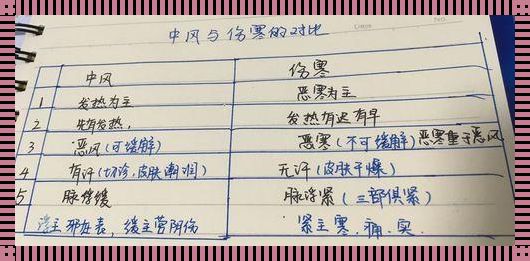 中风与伤寒的对比
中风 伤寒
1 发热为主 恶寒为主
2 先有发热， 发热有迟有早
3 恶风（可缓解） 恶寒（不可缓解）恶寒重于恶风
4 有汗（切诊，皮肤潮润） 无汗（皮肤干燥）
5 脉浮缓 脉浮紧（三部俱紧）
浮主邪在表，缓主营阴伤 紧主寒、痛、实